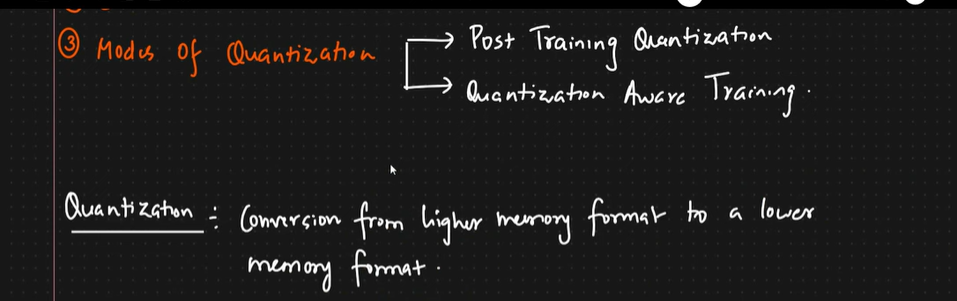 ③ Modes of Quantization
→ Post Training Quantization
→ Quantization Aware Training.
Quantization ÷ Conversion from higher memory format to a lower
memory format.